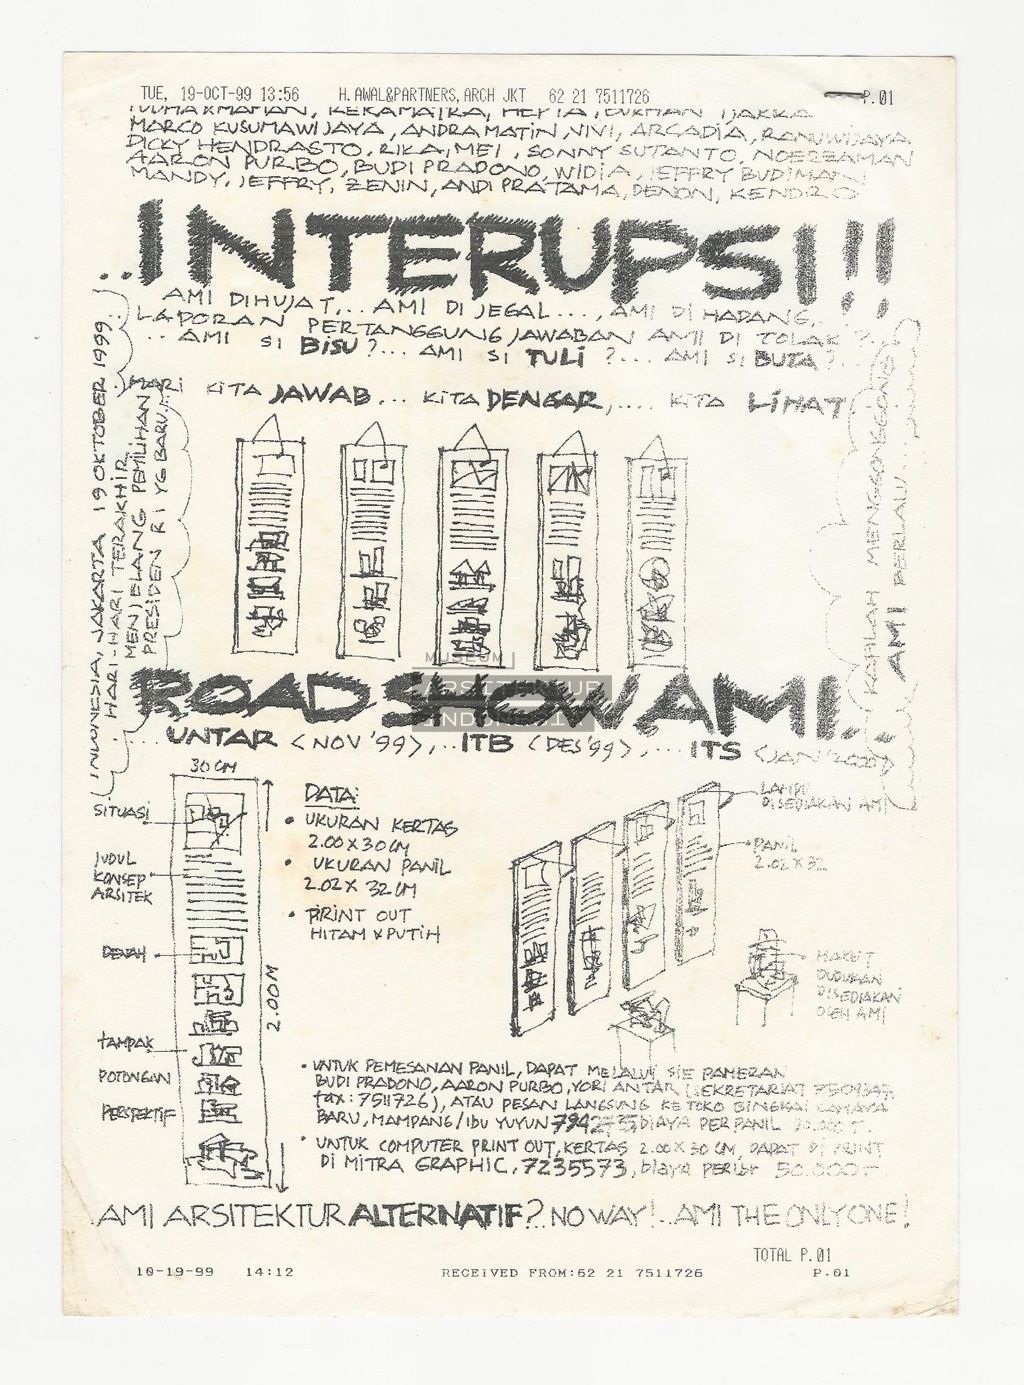 TUE, 19-OCT-99 13:56 H. AWAL&PARTNERS, ARCH JKT 62 21 7511726 P.01
MARCO KUSUMAWIJAYA, ANDRA MATIN, NIVI, ARCADIA, RANUWIJAYA,
DICKY HENDRASTO, RIKA, MEI, SONNY SUTANTO, NOERZAMAN
AARON PURBO, BUDI PRADONO, WIDIA, JEFFRY BUDIMAN
MANDY, JEFFRY, ZENIN, ANDI PRATAMA, DENON, KENDRO
..INTERUPSI!!!
AMI DIHUJAT... AMI DI JEGAL...., AMI DI HADANG..
LAPORAN PERTANGGUNG JAWABAN AMI DI TOLAK?.
.. AMI SI BISU?... AMI SI TULI ?.... AMI SI BUTA?..
MARI KITA JAWAB... KITA DENGAR,.... KITA LIHAT
INDONESIA, JAKARTA 19 OKTOBER 1999..
HARI-HARI TERAKHIR
MENJELANG PEMILIHAN
PRESIDEN RI YG BARU...
KAFILAH MENGGONGGONG
AMI BERLALU...
MUSEUM
ARSITEKTUR
INDONESIA
ROAD SHOW AMI...
...UNTAR (NOV '99), ..ITB (DES'99), ....ITS (JAN '2000)
30 CM
SITUASI
JUDUL
KONSEP
ARSITEK
DENAH
TAMPAK
POTONGAN
PERSPEKTIF
2.00 M
DATA:
• UKURAN KERTAS
2.00 X 30 CM
• UKURAN PANIL
2.02 X 32 CM
• PRINT OUT
HITAM & PUTIH
LAMPU
DISEDIAKAN AMI
PANIL
2.02 X 32
MAKET
DUDUKAN
DISEDIAKAN
OLEH AMI
• UNTUK PEMESANAN PANIL, DAPAT MELALUI SIE PAMERAN
BUDI PRADONO, AARON PURBO, YORI ANTAR (SEKRETARIAT
fax: 7511726), ATAU PESAN LANGSUNG KE TOKO BINGKAI CAHAYA
BARU, MAMPANG/Ibu YUYUN BIAYA PER PANIL
• UNTUK COMPUTER PRINT OUT, KERTAS 2.00 X 30 CM, DAPAT DI PRINT
DI MITRA GRAPHIC, 7235573, biaya perlbr 50.000
AMI ARSITEKTUR ALTERNATIF?.. NO WAY!.. AMI THE ONLY ONE!
TOTAL P.01
10-19-99 14:12 RECEIVED FROM:62 21 7511726 P.01